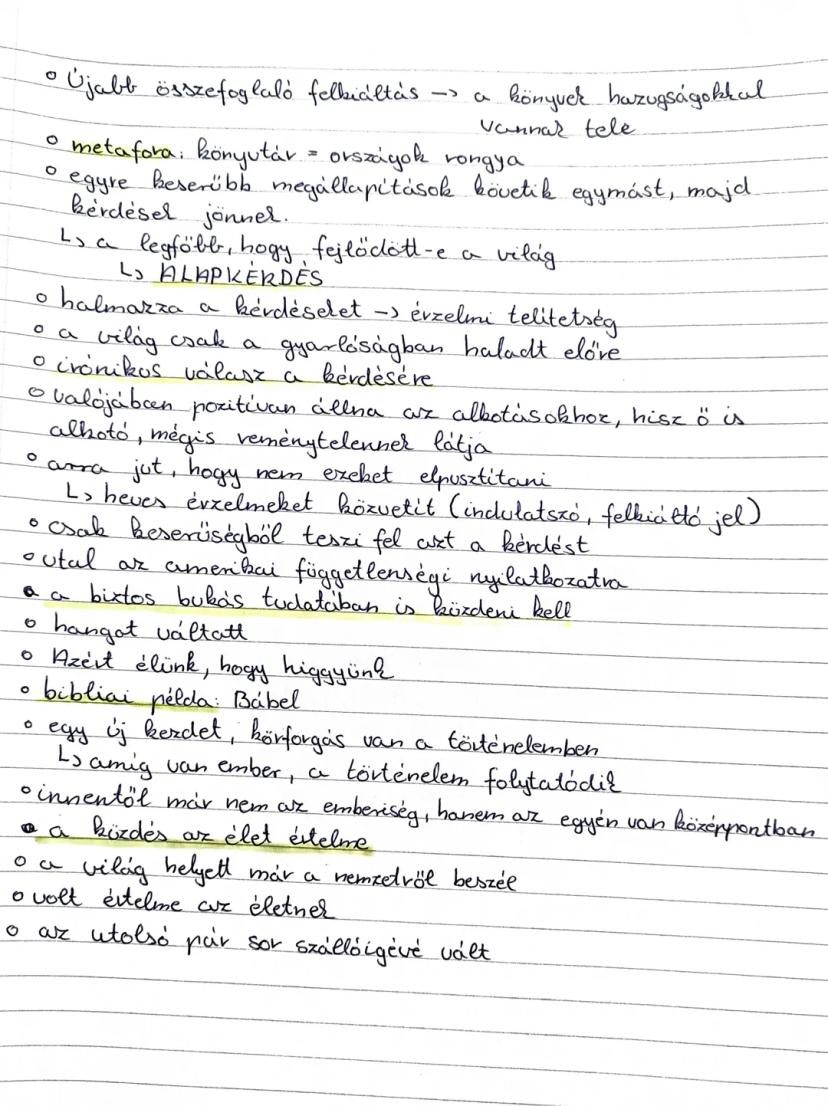 o Újabb összefoglaló felkiáltás -> a könyvek hazugságokkal
vannak tele
o metafora: könyvtár = országok rongya
o egyre keserűbb megállapítások követik egymást, majd
kérdések jönnek.
↳ a legfőbb, hogy fejlődött-e a világ
↳ ALAPKÉRDÉS
o halmazza a kérdéseket -> érzelmi telítetség
o a világ csak a gyarlóságban haladt előre
o irónikus válasz a kérdésére
o valójában pozitívan állna az alkotásokhoz, hisz ő is
alkotó, mégis reménytelennek látja
o arra jut, hogy nem ezeket elpusztítani
↳ heves érzelmeket közvetít (indulatszó, felkiáltó jel)
o csak keserűségből teszi fel azt a kérdést
o utal az amerikai függetlenségi nyilatkozatra
o a biztos bukás tudatában is küzdeni kell
o hangot váltatt
o Azért élünk, hogy higgyünk
o bibliai példa: Bábel
o egy új kezdet, körforgás van a történelemben
↳ amíg van ember, a történelem folytatódik
o innentől már nem az emberiség, hanem az egyén van középpontban
o a küzdés az élet értelme
o a világ helyett már a nemzetről beszél
o volt értelme az életnek
o az utolsó pár sor szállóigévé vált